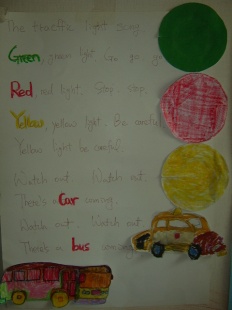 The traffic light song
Green, green light. Go, go, go
Red, red light. Stop, stop.
Yellow, yellow light. Be
Yellow light be careful.
Watch out. Watch out.
There's a Car coming.
Watch out. Watch out.
There's a bus coming.